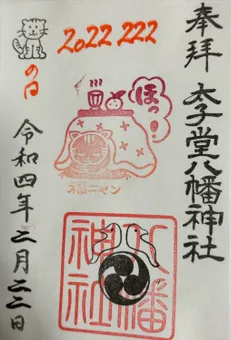 奉拝
太子堂八幡神社
2022 222
の日
ほっ!
福ニャン
八幡
神社
令和四年二月二二日